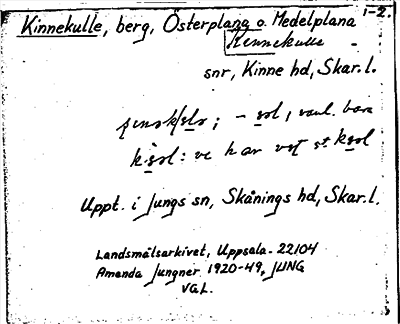 1-2.
Kinnekulle, berg, Österplana o. Medelplana
Kinnekulle
snr, Kinne hd, Skar. l.
; - sol, vanl. bara
kisol: ve har vot st ksol
Uppt. i Jungs sn, Skånings hd, Skar. l.
Landsmålsarkivet, Uppsala. 22104
Amanda Jungner 1920-49, JUNG
VGL.